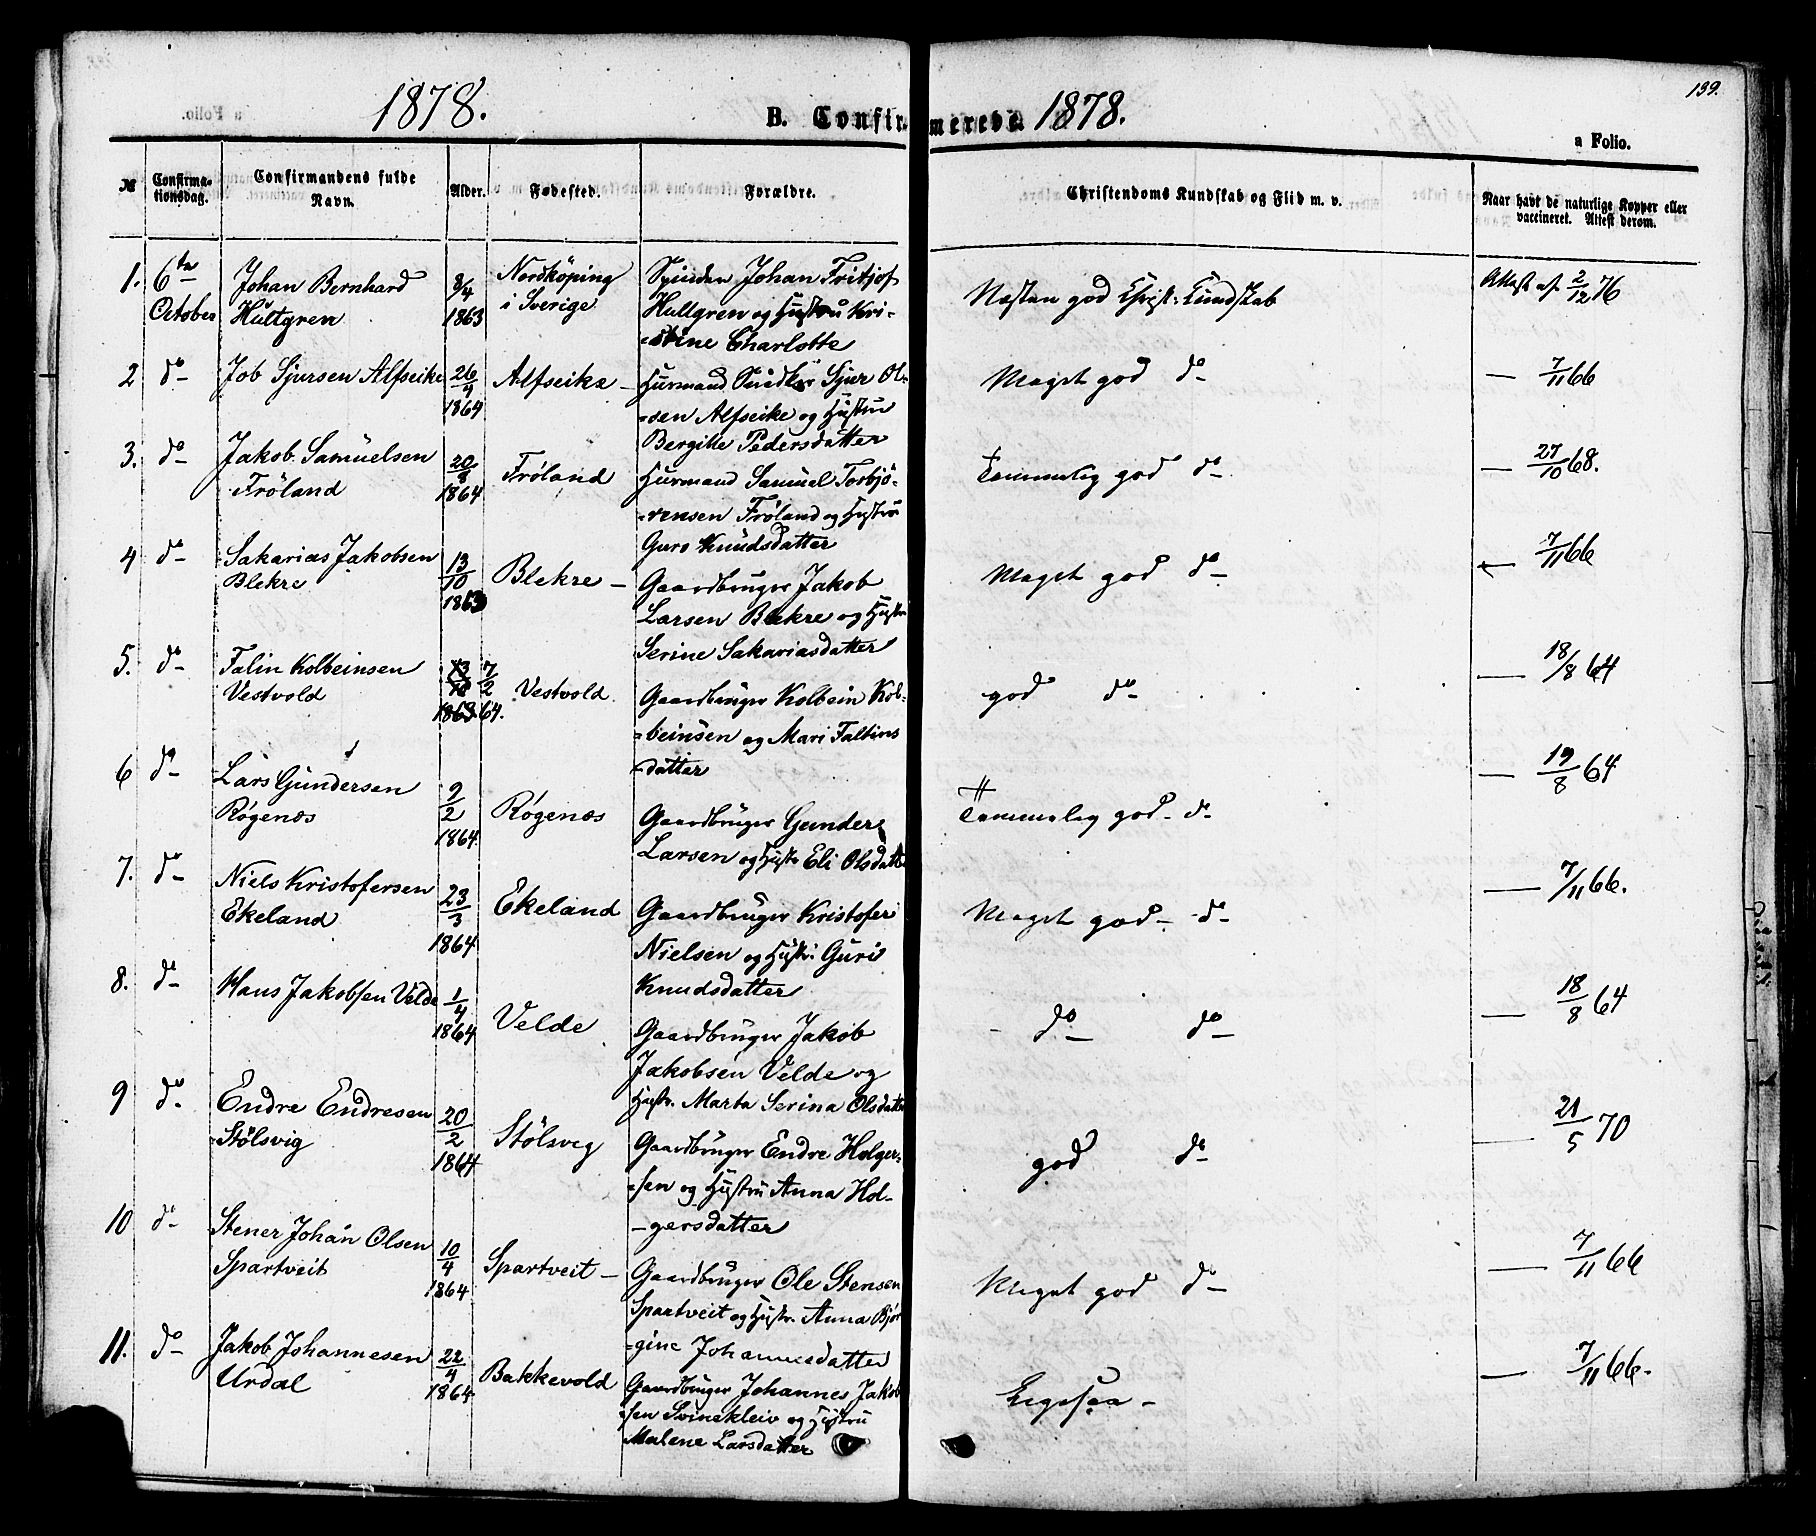 199.
1878. B. Confirmerede. 1878.
a Folio.
№ Confirmationsdag. Confirmandens fulde Navn. Alder. Fødested. Forældre. Christendoms Kundskab og Flid m. v. Naar havt de naturlige Kopper eller vaccineret. Attest derom.
1. 6te October
Johan Bernhard
Hultgren
8/4 1863
Nordköping
i Sverige
Johan Fritjof
Hultgren og Hustru Kri-
-stine Charlotte
Næsten god Christ: Kundskab
Attest af 2/12 76
2 do
Job Sjursen Alfseike
26/4 1864
Alfseike -
Huusmand Sjur Ol-
-sen Alfseike og Hustru
Bergitte Pedersdatter
Meget god do
— 7/11 66
3. do
Jakob Samuelsen
Frøland
20/8 1864
Frøland
Huusmand Samuel Torbjö-
-rensen Frøland og Hustru
Guro Knudsdatter
Temmelig god do
— 27/10 68.
4 do
Sakarias Jakobsen
Blekre
13/10 1863
Blekre -
Gaardbruger Jakob
Larsen Blekre og Hustru
Serine Sakariasdatter
Meget god do
— 7/11 66
5. do
Falin Kolbeinsen
Vestvold
13/10 7/2
1863 64.
Vestvold
Gaardbruger Kolbein Kol-
-beinsen og Mari Faltins
-datter
god do
— 18/8 64
6 do
Lars Gundersen
Røgenæs
9/2 1864
Røgenæs
Gaardbruger Gunder
Larsen og Hustr Eli Olsdatter
Temmelig god do
— 19/8 64
7. do
Niels Kristofersen
Ekeland
23/3 1864
Ekeland
Gaardbruger Kristofer
Nielsen og Hustr. Guri
Knudsdatter
Meget god do
— 7/11 66.
8. do
Hans Jakobsen Velde
1/4 1864
Velde
Gaardbruger Jakob
Jakobsen Velde og
Hustr. Marta Serina Olsdatter
- do do
— 18/8 64
9 do
Endre Endresen
Stölsvig
20/2 1864
Stölsvig
Gaardbruger Endre Holger-
-sen og Hustru Anna Hol-
-gersdatter
god do
— 21/5 70
10 do
Stener Johan Olsen
Spartveit
10/4 1864
Spartveit -
Gaardbruger Ole Stensen
Spartveit og Hustr. Anna Bjør
-gine Johannesdatter
Meget god do
— 7/11 66
11. do
Jakob Johannesen
Urdal
22/4 1864
Bakkevold
Gaardbruger Johannes Jakob
-sen Svinekleiv og Hustru
Malene Larsdatter
Ligesaa -
— 7/11 66.